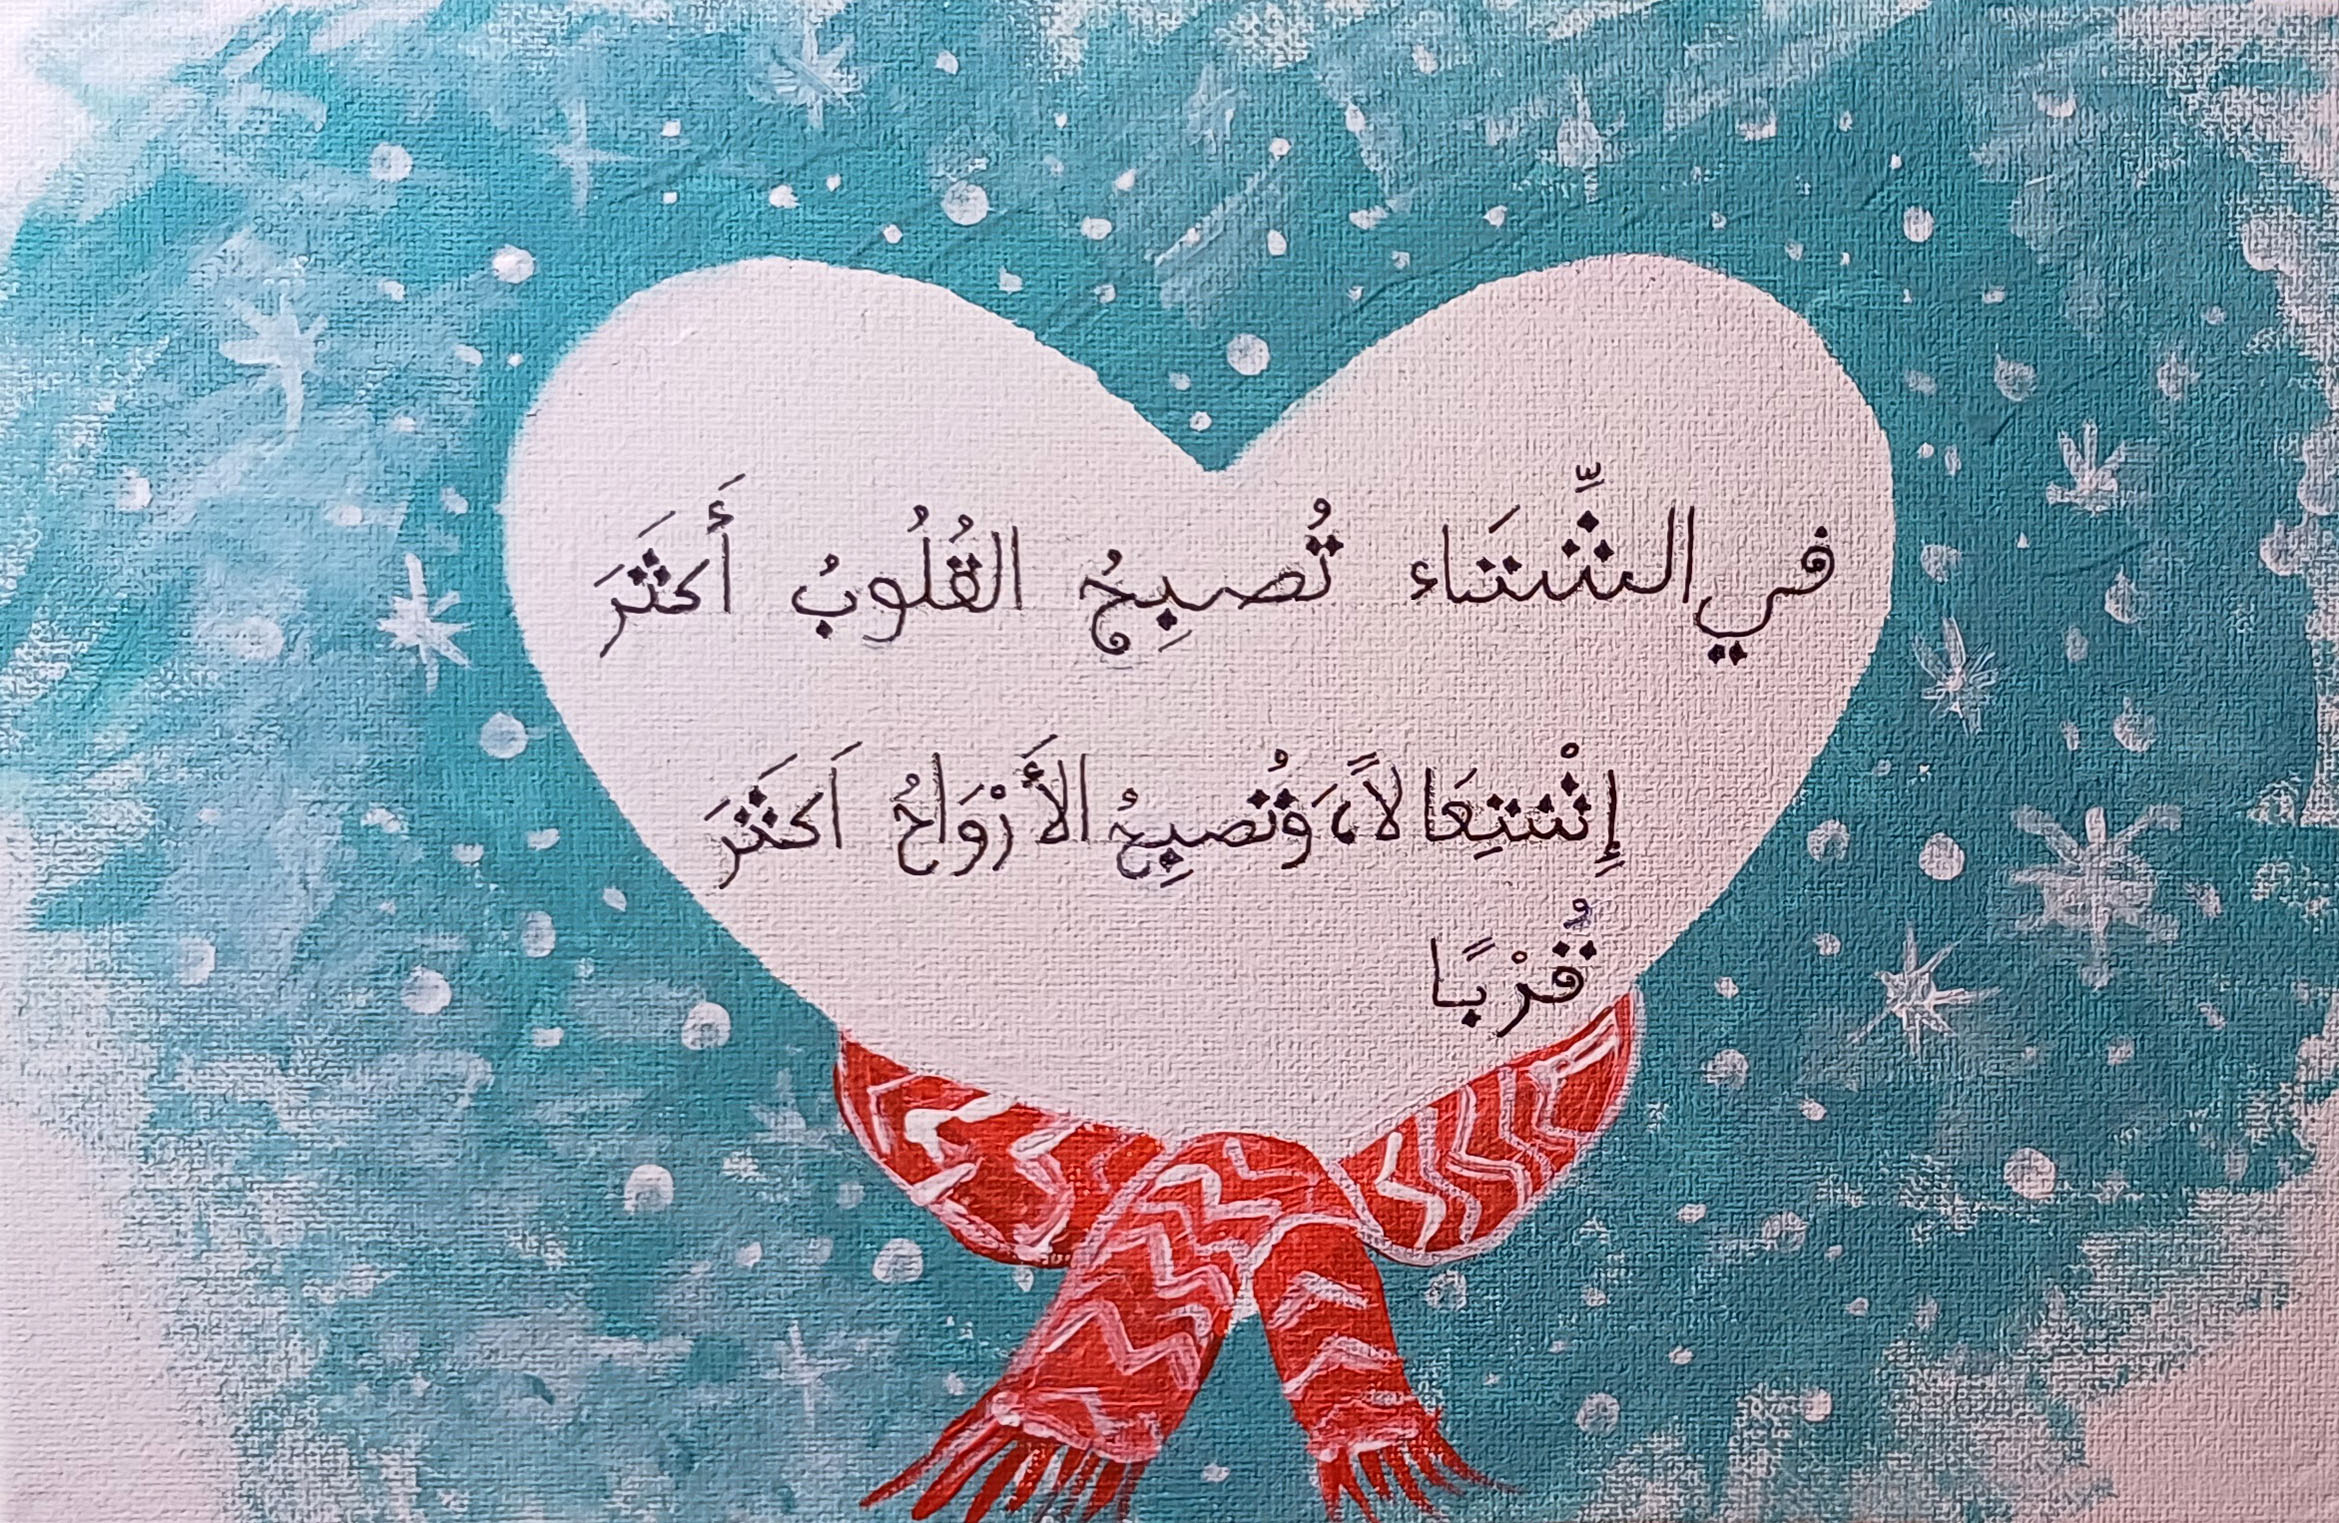 في الشِّتَاء تُصبِحُ القُلُوبُ أَكثَرَ
إِشْتِعَالاً، وَتُصبِحُ الأَرْوَاحُ اَكثَرَ
قُرْبًا